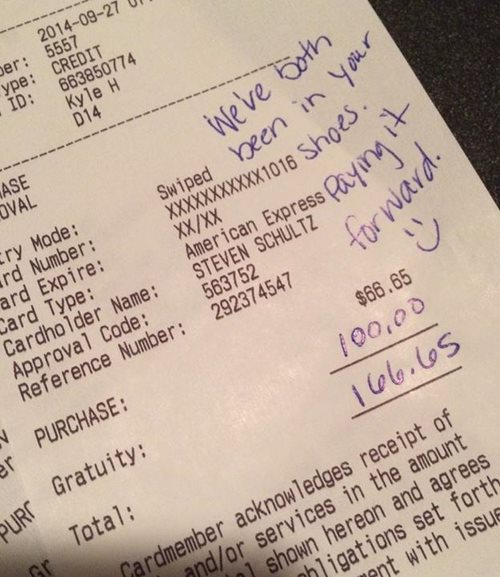 2014-09-27 07
ber: 5557
ype: CREDIT
ID: 663850774
Kyle H
D14
We've both
been in your
shoes.
Paying it
forward.
HASE
OVAL
try Mode: Swiped
rd Number: XXXXXXXXXXX1016
ard Expire: XX/XX
Card Type: American Express
Cardholder Name: STEVEN SCHULTZ
Approval Code: 563752
Reference Number: 292374547
PURCHASE: $66.65
Gratuity: 100.00
Total: 166.65
Cardmember acknowledges receipt of
and/or services in the amount
shown hereon and agrees
obligations set forth
ment with issue
er
PURC
Gr